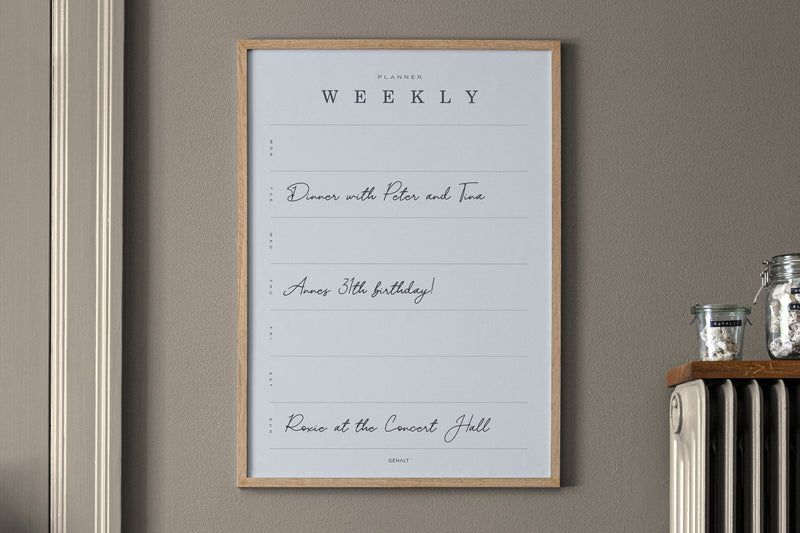 PLANNER
WEEKLY
MON
TUE
Dinner with Peter and Tina
WED
THU
Annes 31th birthday!
FRI
SAT
SUN
Roxie at the Concert Hall
GEHALT